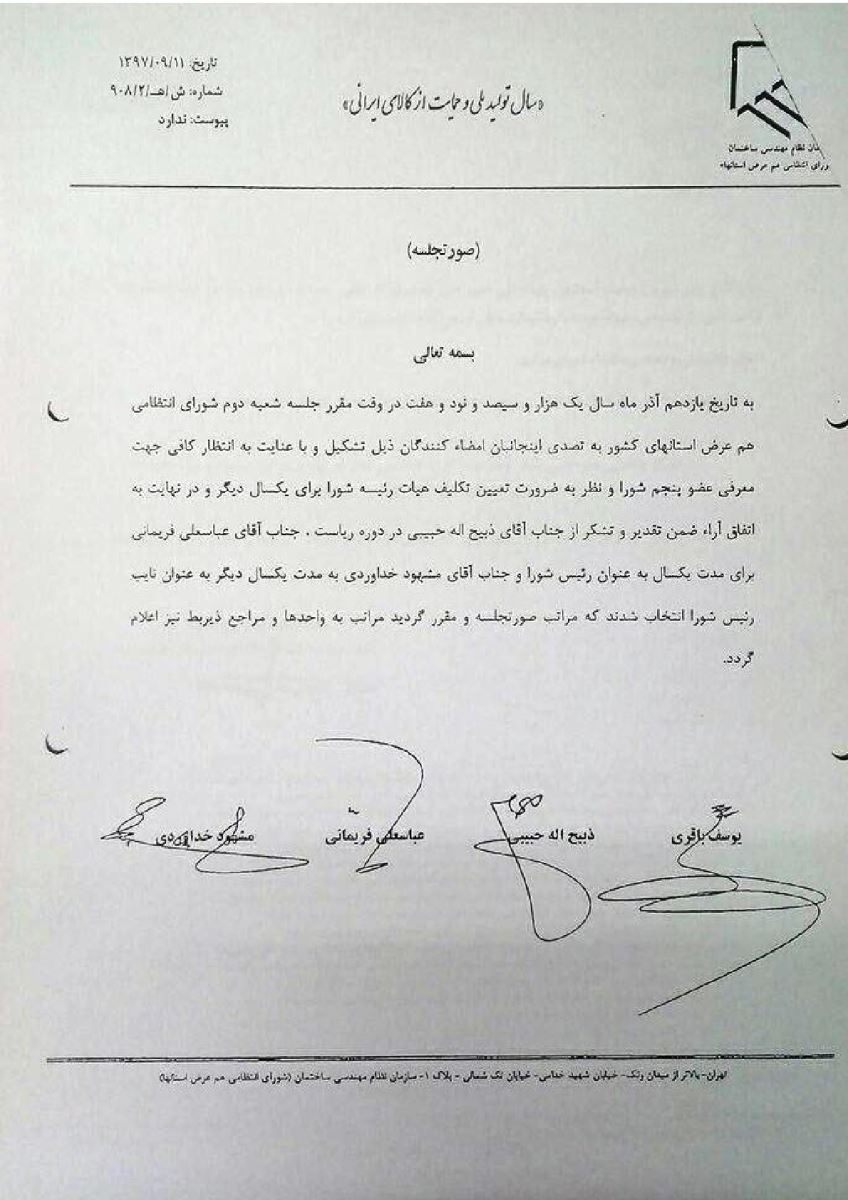 تاریخ: ۱۳۹۷/۰۹/۱۱
شماره: ش/هـ/۹۰۸/۲
پیوست: ندارد
«سال تولید ملی و حمایت از کالای ایرانی»
نظام مهندسی ساختمان
انتظامی هم عرض استانها
(صورتجلسه)
بسمه تعالی
به تاریخ یازدهم آذر ماه سال یک هزار و سیصد و نود و هفت در وقت مقرر جلسه شعبه دوم شورای انتظامی
هم عرض استانهای کشور به تصدی اینجانبان امضاء کنندگان ذیل تشکیل و با عنایت به انتظار کافی جهت
معرفی عضو پنجم شورا و نظر به ضرورت تعیین تکلیف هیات رئیسه شورا برای یکسال دیگر و در نهایت به
اتفاق آراء ضمن تقدیر و تشکر از جناب آقای ذبیح اله حبیبی در دوره ریاست ، جناب آقای عباسعلی فریمانی
برای مدت یکسال به عنوان رئیس شورا و جناب آقای مشهود خداوردی به مدت یکسال دیگر به عنوان نایب
رئیس شورا انتخاب شدند که مراتب صورتجلسه و مقرر گردید مراتب به واحدها و مراجع ذیربط نیز اعلام
گردد.
یوسف باقری ذبیح اله حبیبی عباسعلی فریمانی مشهود خداوردی
تهران- بالاتر از میدان ونک- خیابان شهید خدامی- خیابان تک شمالی - پلاک ۱- سازمان نظام مهندسی ساختمان (شورای انتظامی هم عرض استانها)